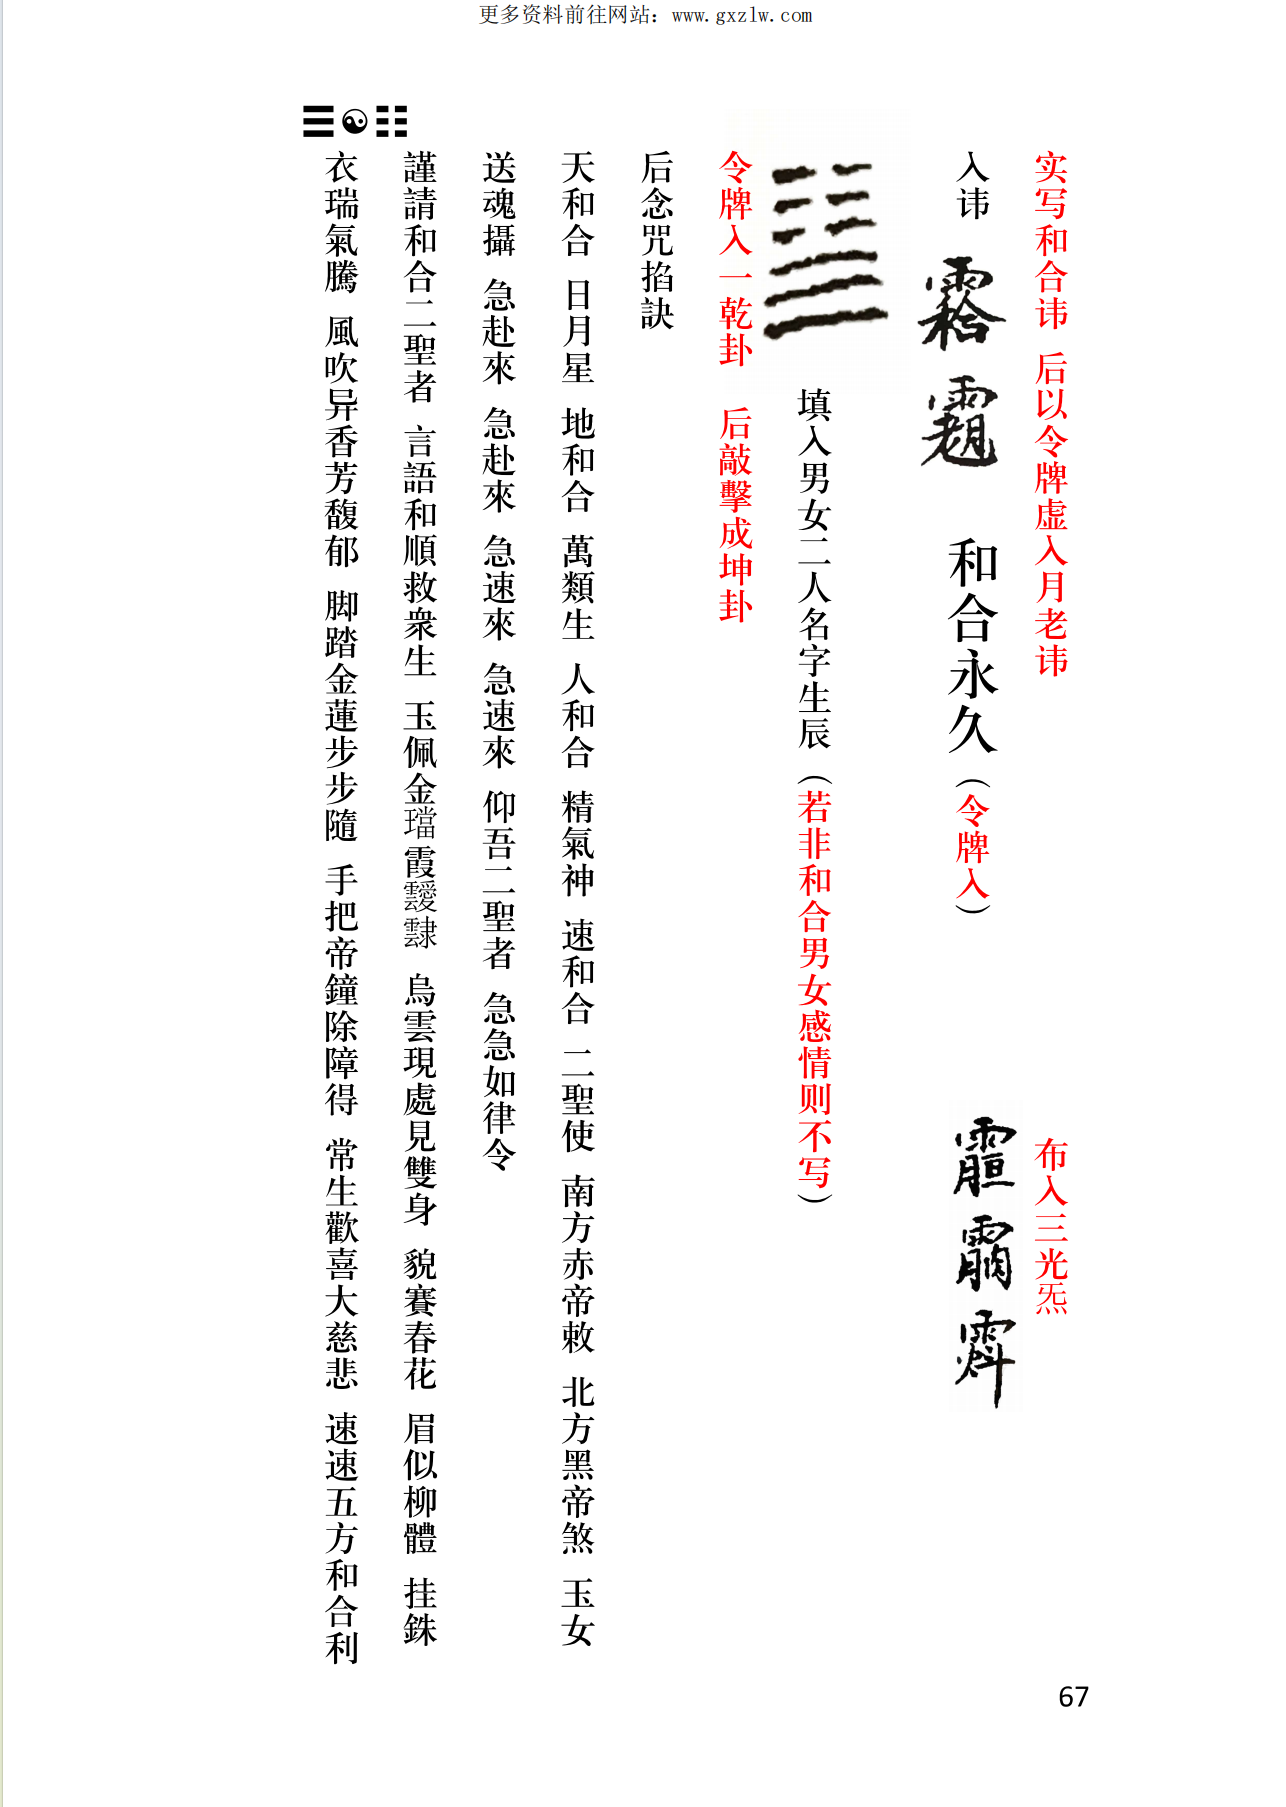 更多资料前往网站：www.gxzlw.com
实写和合讳 后以令牌虚入月老讳 布入三光炁
入讳 和合永久（令牌入）
填入男女二人名字生辰（若非和合男女感情则不写）
令牌入一乾卦 后敲擊成坤卦
后念咒掐訣
天和合 日月星 地和合 萬類生 人和合 精氣神 速和合 二聖使 南方赤帝敕 北方黑帝煞 玉女
送魂攝 急赴來 急赴來 急速來 急速來 仰吾二聖者 急急如律令
謹請和合二聖者 言語和順救衆生 玉佩金璫霞靉靆 烏雲現處見雙身 貌賽春花 眉似柳體 挂銖
衣瑞氣騰 風吹异香芳馥郁 脚踏金蓮步步隨 手把帝鐘除障得 常生歡喜大慈悲 速速五方和合利
☰☯☷
67